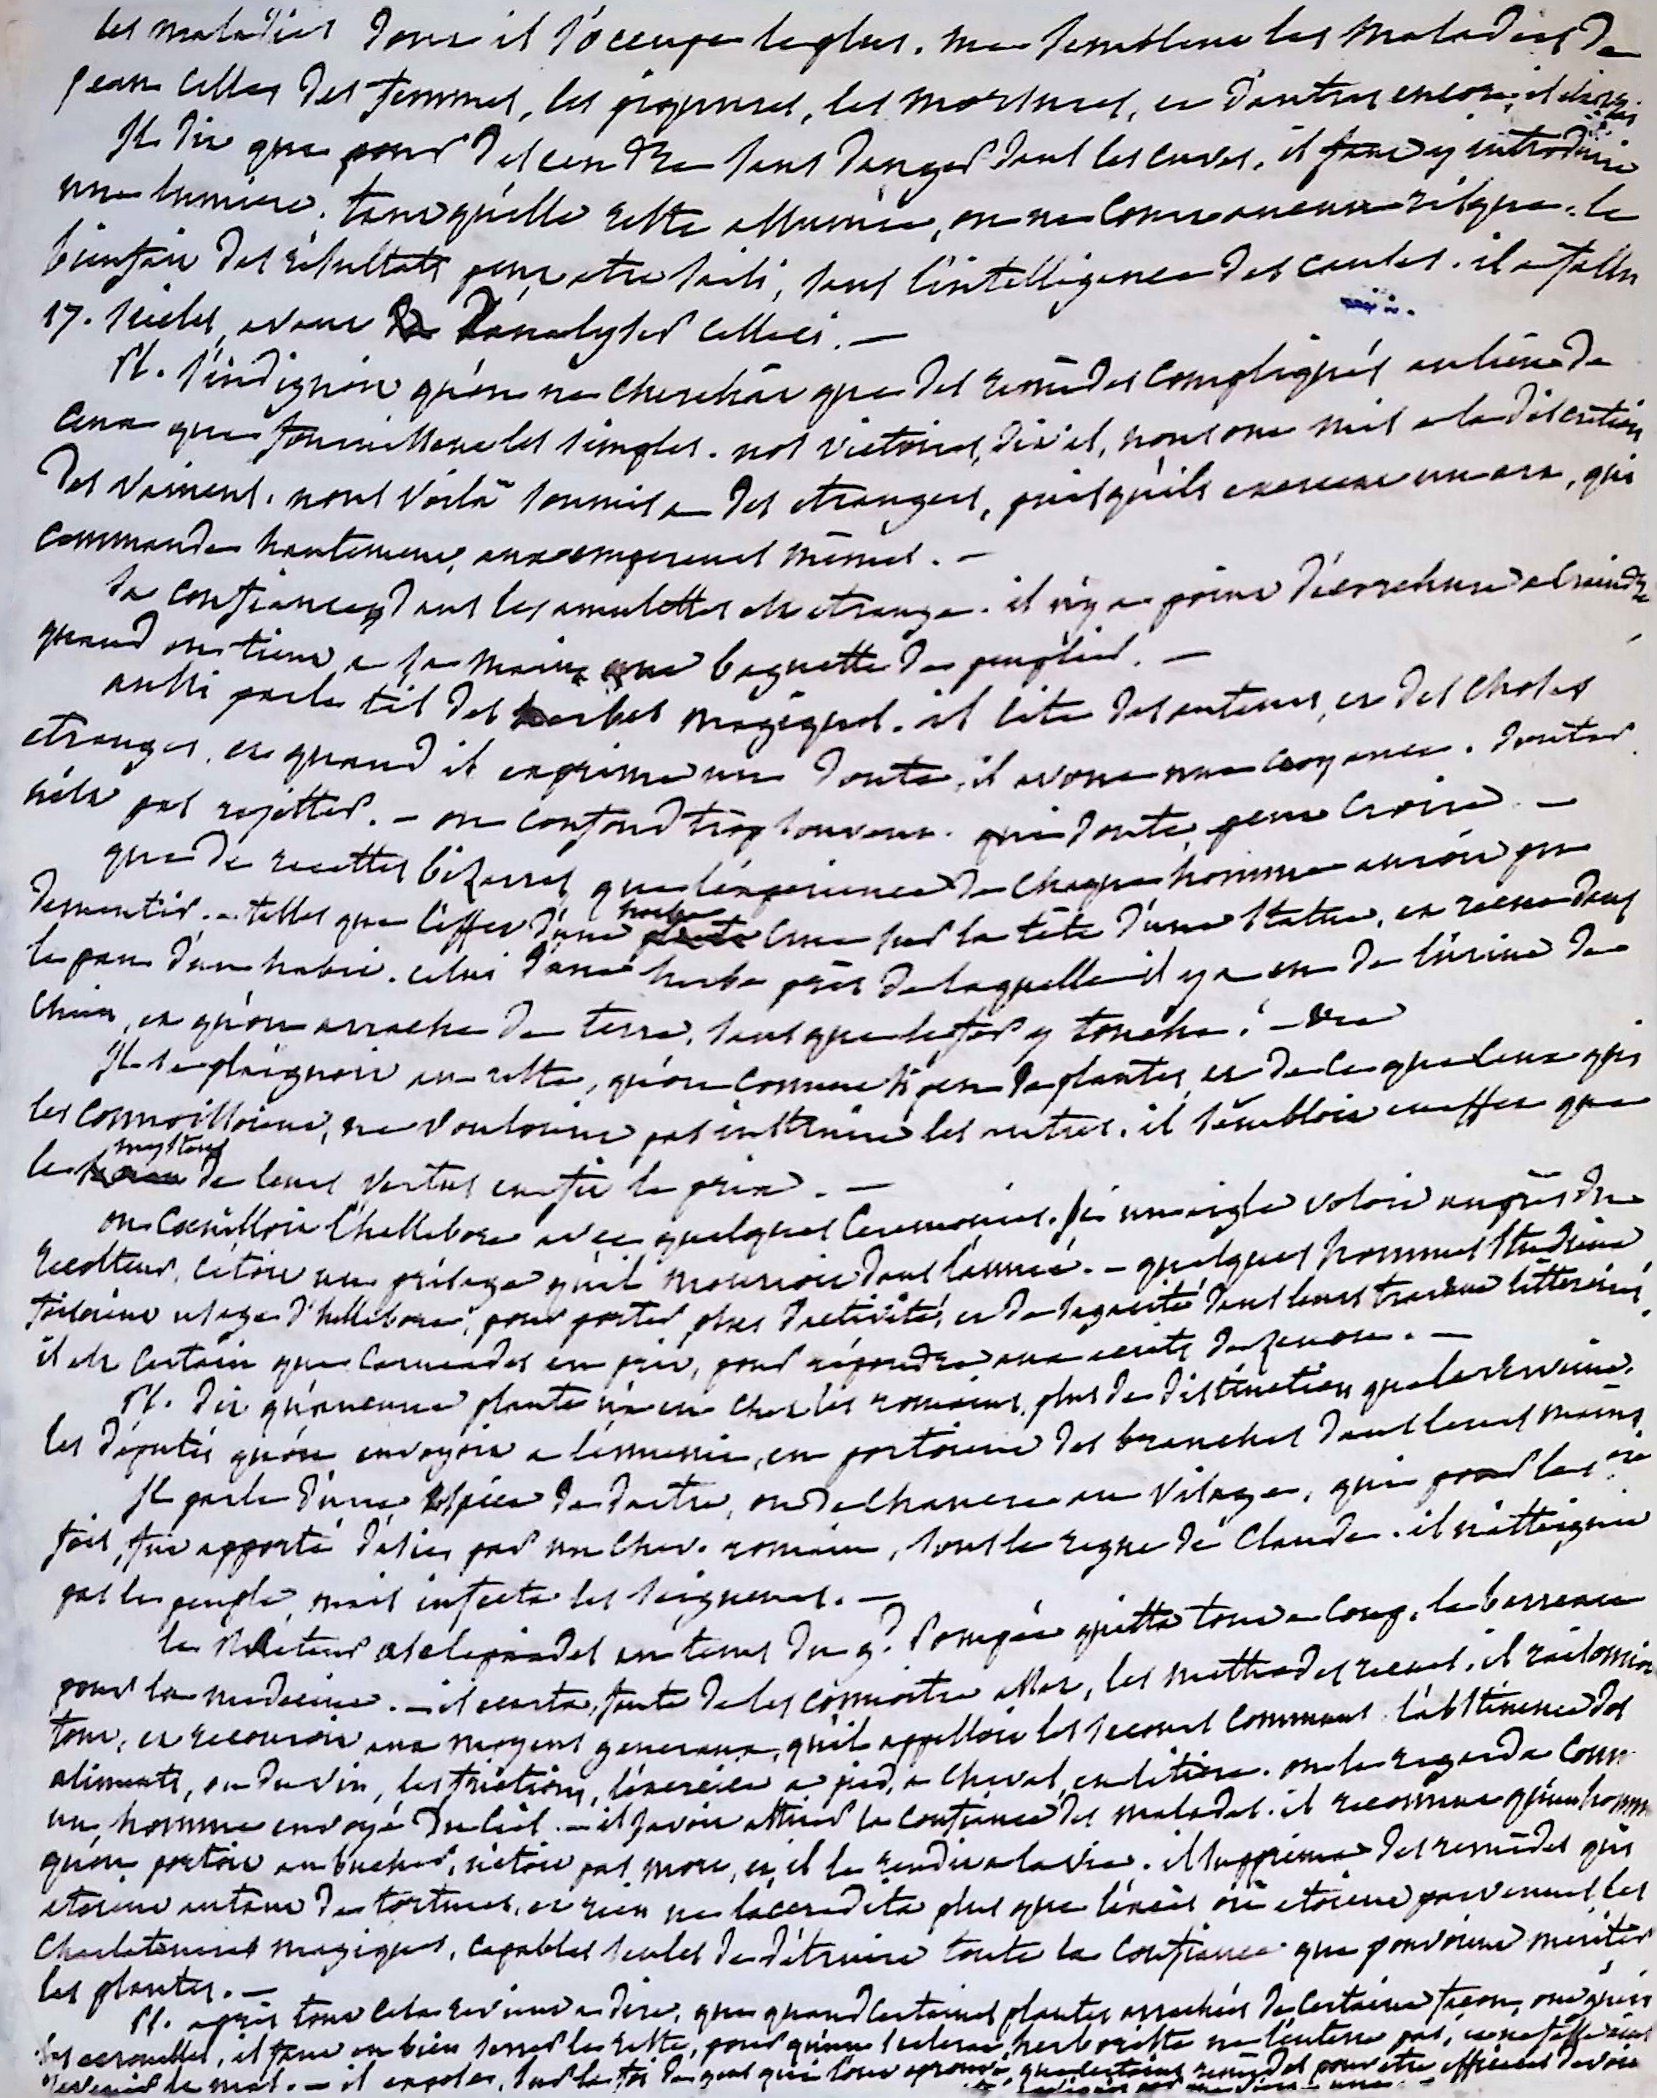 les maladies dont il s'occupe le plus. me semblent les maladies de
peau celles des femmes, les piqures, les morsures, et d'autres encore,
Il dit que pour descendre sans danger dans les caves, il faut y introduire
une lumiere. tant qu'elle reste allumée, on ne court aucun risque. le
bienfait des résultats peut etre saisi, sans l'intelligence des causes. il a fallu
17. siecles, avant d'analyser celleci. —
Pl. s'indignoit qu'on ne cherchât que des remèdes compliqués au lieu de
ceux que fournissent les simples. nos victoires, dit il, nous ont mis a la discrétion
des vaincus. nous voilà soumis a des etrangers, puisqu'ils exercent un art, qui
commande hautement, aux empereurs mêmes. —
sa confiance dans les amulettes est etrange. il n'y a point d'écorchure a craindre
quand on tient a sa main une baguette de peuplier. —
aussi parle t'il des herbes magiques. il cite des auteurs, et des choses
etranges. et quand il exprime un doute, il avoue une croyance. douter
n'est pas rejetter. — on confond trop souvent. qui doute, peut croire. —
que de recettes bizarres que l'expérience de chaque homme auroit pu
dementir. — telles que l'effet d'une herbe crue sur la tête d'une statue, et recue dans
le pan d'un habit. celui d'une herbe près de laquelle il y a eu de l'urine de
chien, et qu'on arrache de terre, sans que le fer y touche. —
Il se plaignoit au reste, qu'on connut si peu de plantes, et de ce que ceux qui
les connoissoient, ne vouloient pas instruire les autres. il sembloit en effet que
le mystere de leurs vertus en fit le prix. —
on cueilloit l'hellebore avec quelques ceremonies. si un aigle voloit auprès du
recolteur, c'étoit un présage qu'il mourroit dans l'année. — quelques hommes studieux
faisoient usage d'hellebore, pour porter plus d'activité, et de sagacité dans leurs travaux litteraires,
il est certain que Carneades en prit, pour répondre aux ecrits de Zenon. —
Pl. dit qu'aucune plante n'a eu chez les romains, plus de distinction que la verveine.
les députés qu'on envoyoit a l'ennemi, en portoient des branches dans leurs mains
Il parle d'une espèce de dartre, ou de chancre au visage, qui pour la 1re
fois, fut apporté d'asie par un chev. romain, sous le regne de Claude. il n'atteignit
pas le peuple, mais infecta les seigneurs. —
le Rheteur asclepiades au tems du gd Pompée quitta tout a coup, le barreau
pour la medecine. — il ecarta, faute de les connoitre assez, les methodes recues. il raisonnoit
tout, et recouroit aux moyens generaux, qu'il appelloit les secours communs. l'abstinence des
aliments, ou du vin, les frictions, l'exercice a pied, a cheval, en litiere. on le regarda comme
un homme envoyé du ciel. — il savoit attirer la confiance des malades. il reconnut qu'un homme
qu'on portoit au bucher, n'etoit pas mort, et il le rendit a la vie. il supprima des remèdes qui
etoient autant de tortures, et rien ne l'accredita plus que l'excès où etoient parvenues les
charlataneries magiques, capables seules de détruire toute la confiance que pouvoient mériter
les plantes. —
Pl. après tout cela revient a dire, que quand certaines plantes arrachées de certaine façon, ont guéri
les ecrouelles, il faut en bien serrer le reste, pour qu'un scelerat herboriste ne l'enterre pas,
le mal. — il expose, sur la foi de gens qui l'ont eprouvé, que certains remèdes pour etre efficaces doivent